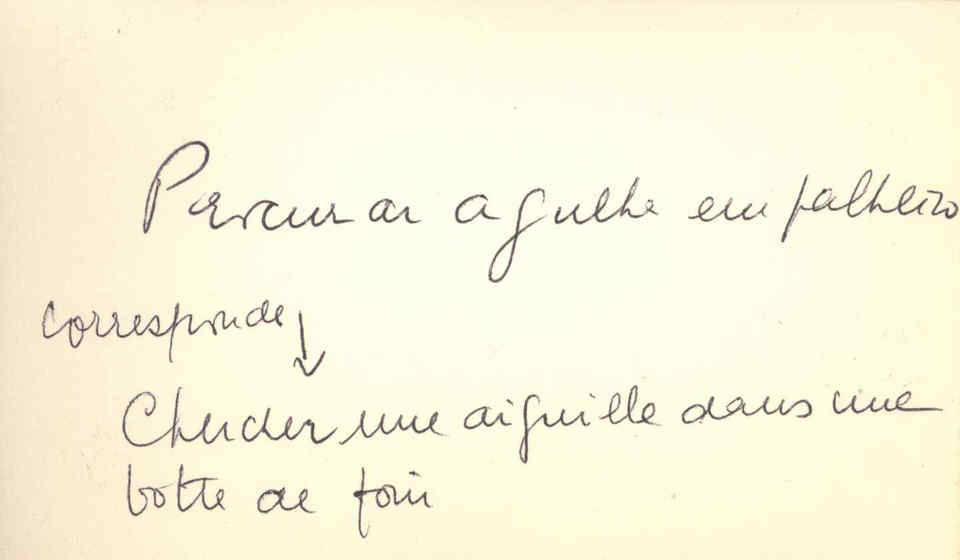 Procurar agulha em palheiro
corresponde ↓
Chercher une aiguille dans une
botte de foin